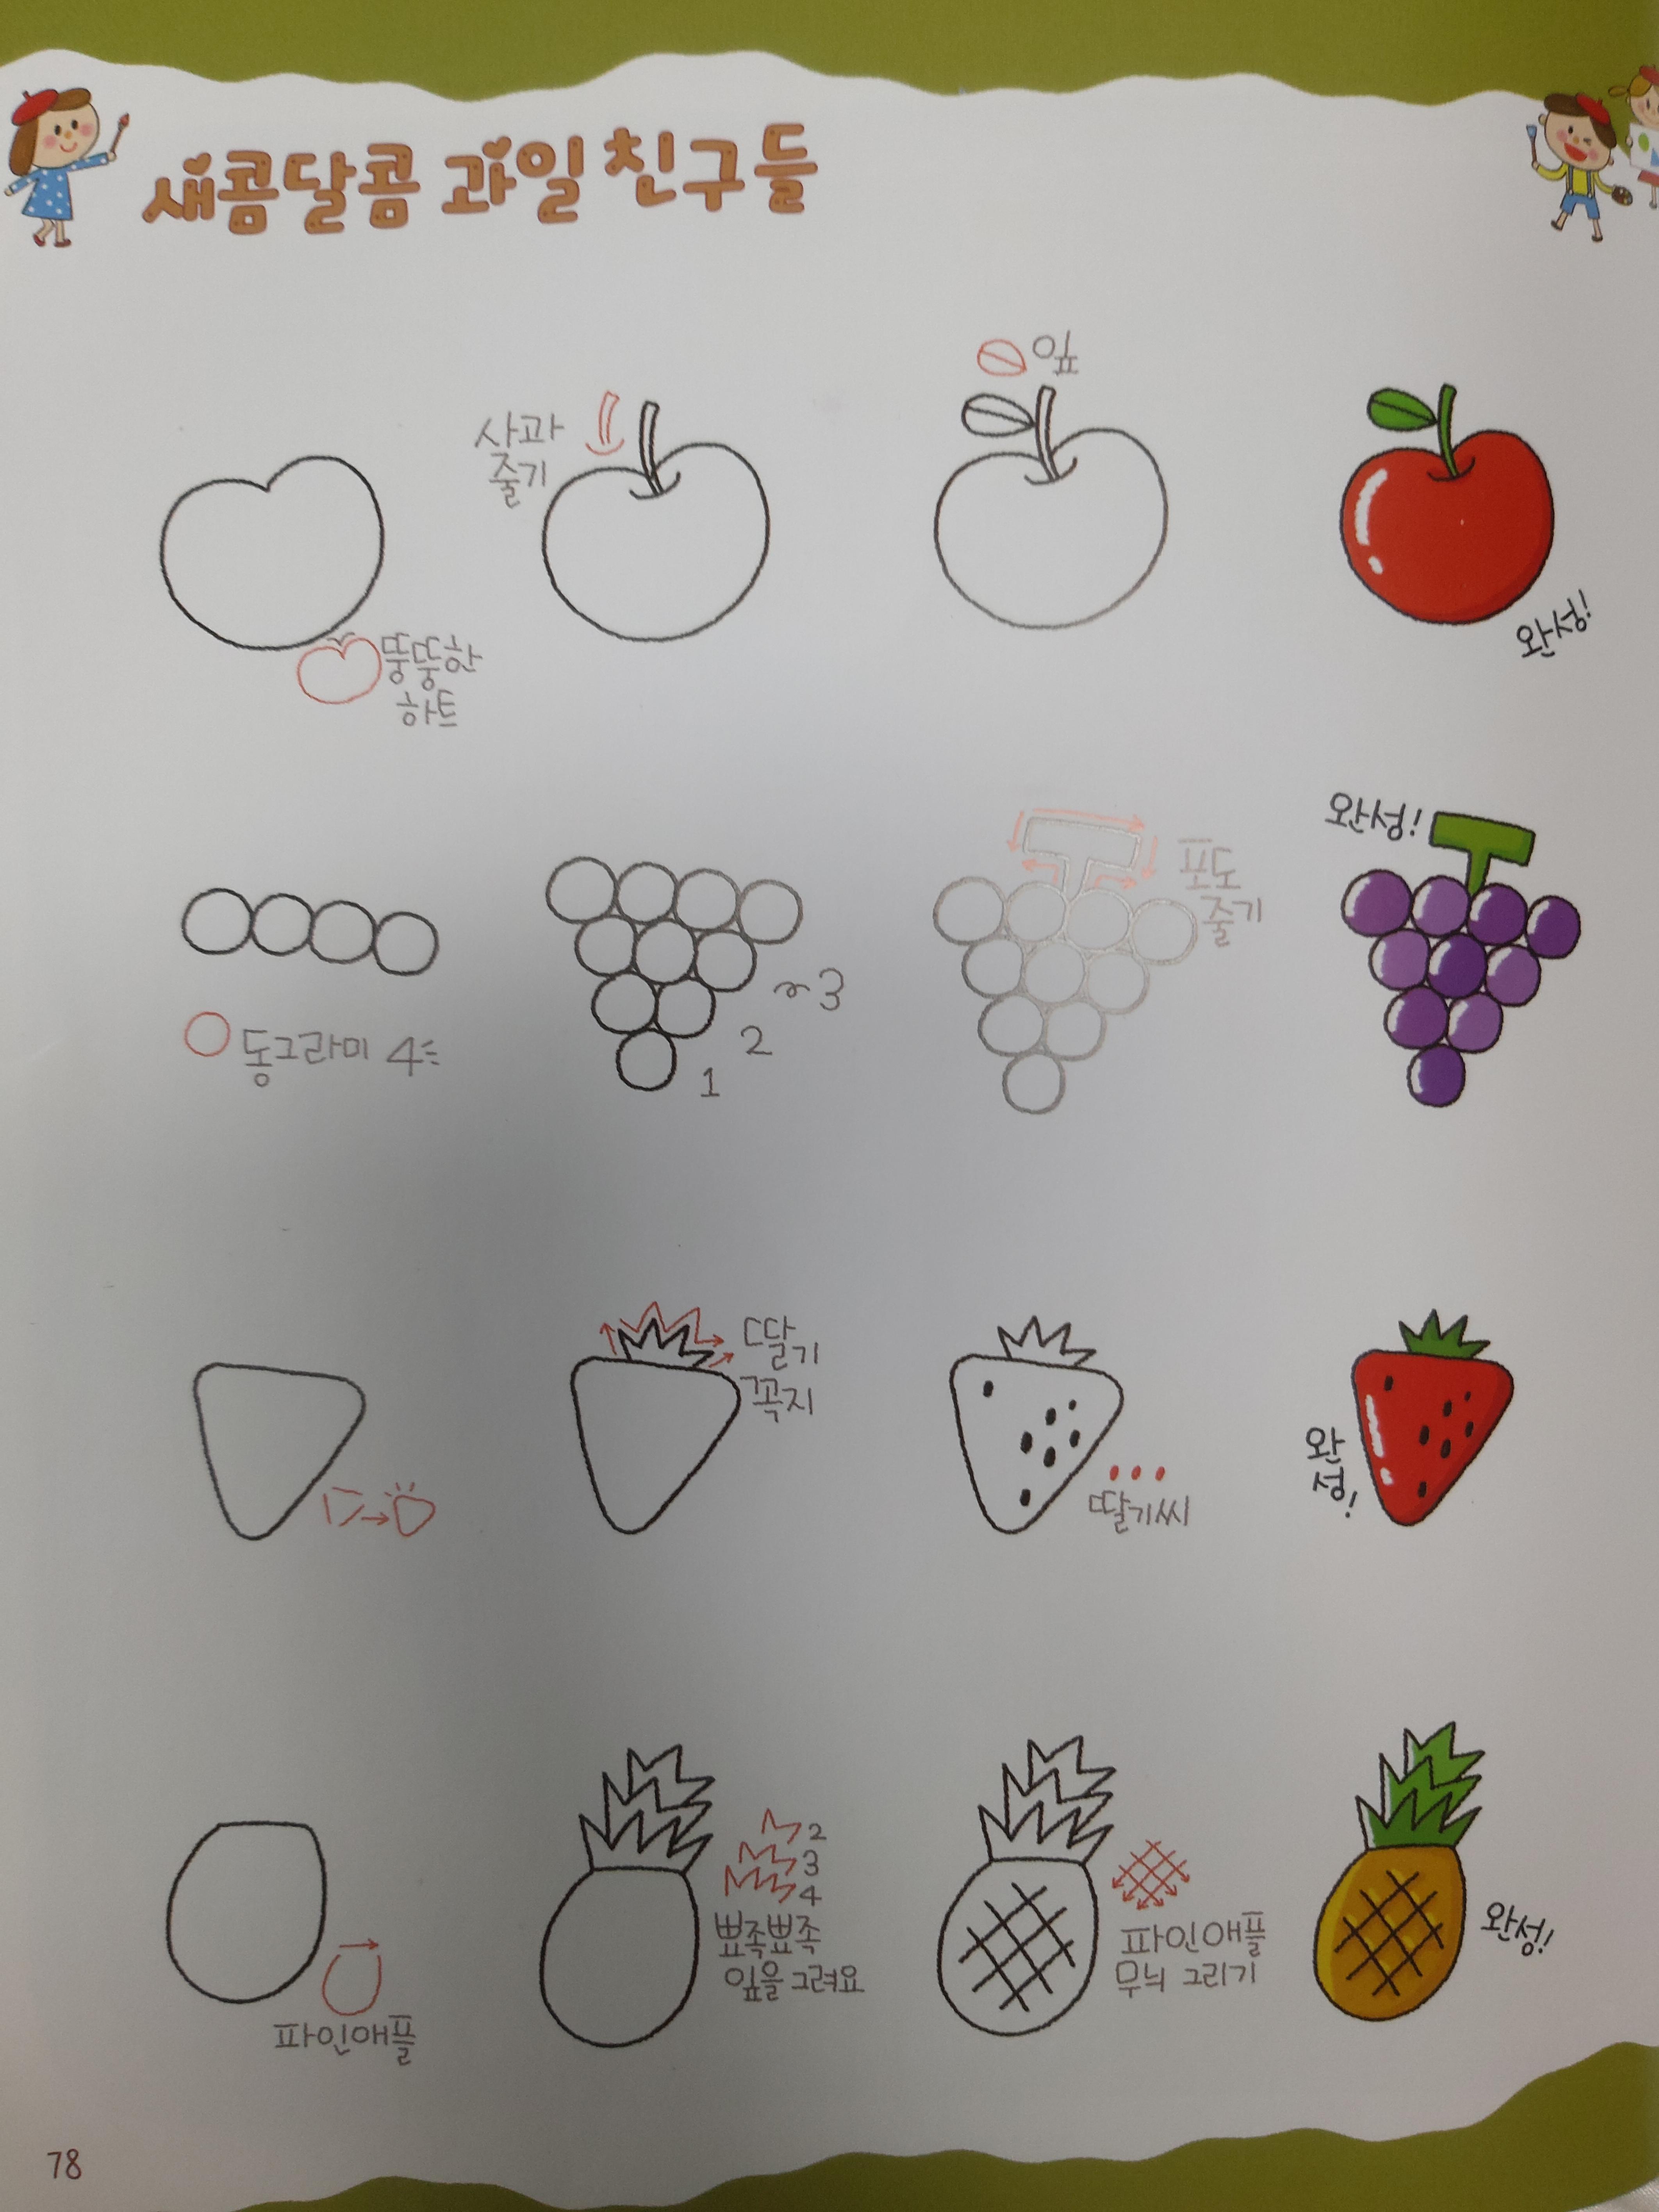 새콤달콤 과일 친구들
뚱뚱한
하트
사과
줄기
잎
완성!
동그라미 4
3
2
1
포도
줄기
완성!
딸기
꼭지
딸기씨
완
성!
파인애플
2
3
4
뾰족뾰족
잎을 그려요
파인애플
무늬 그리기
완성!
78